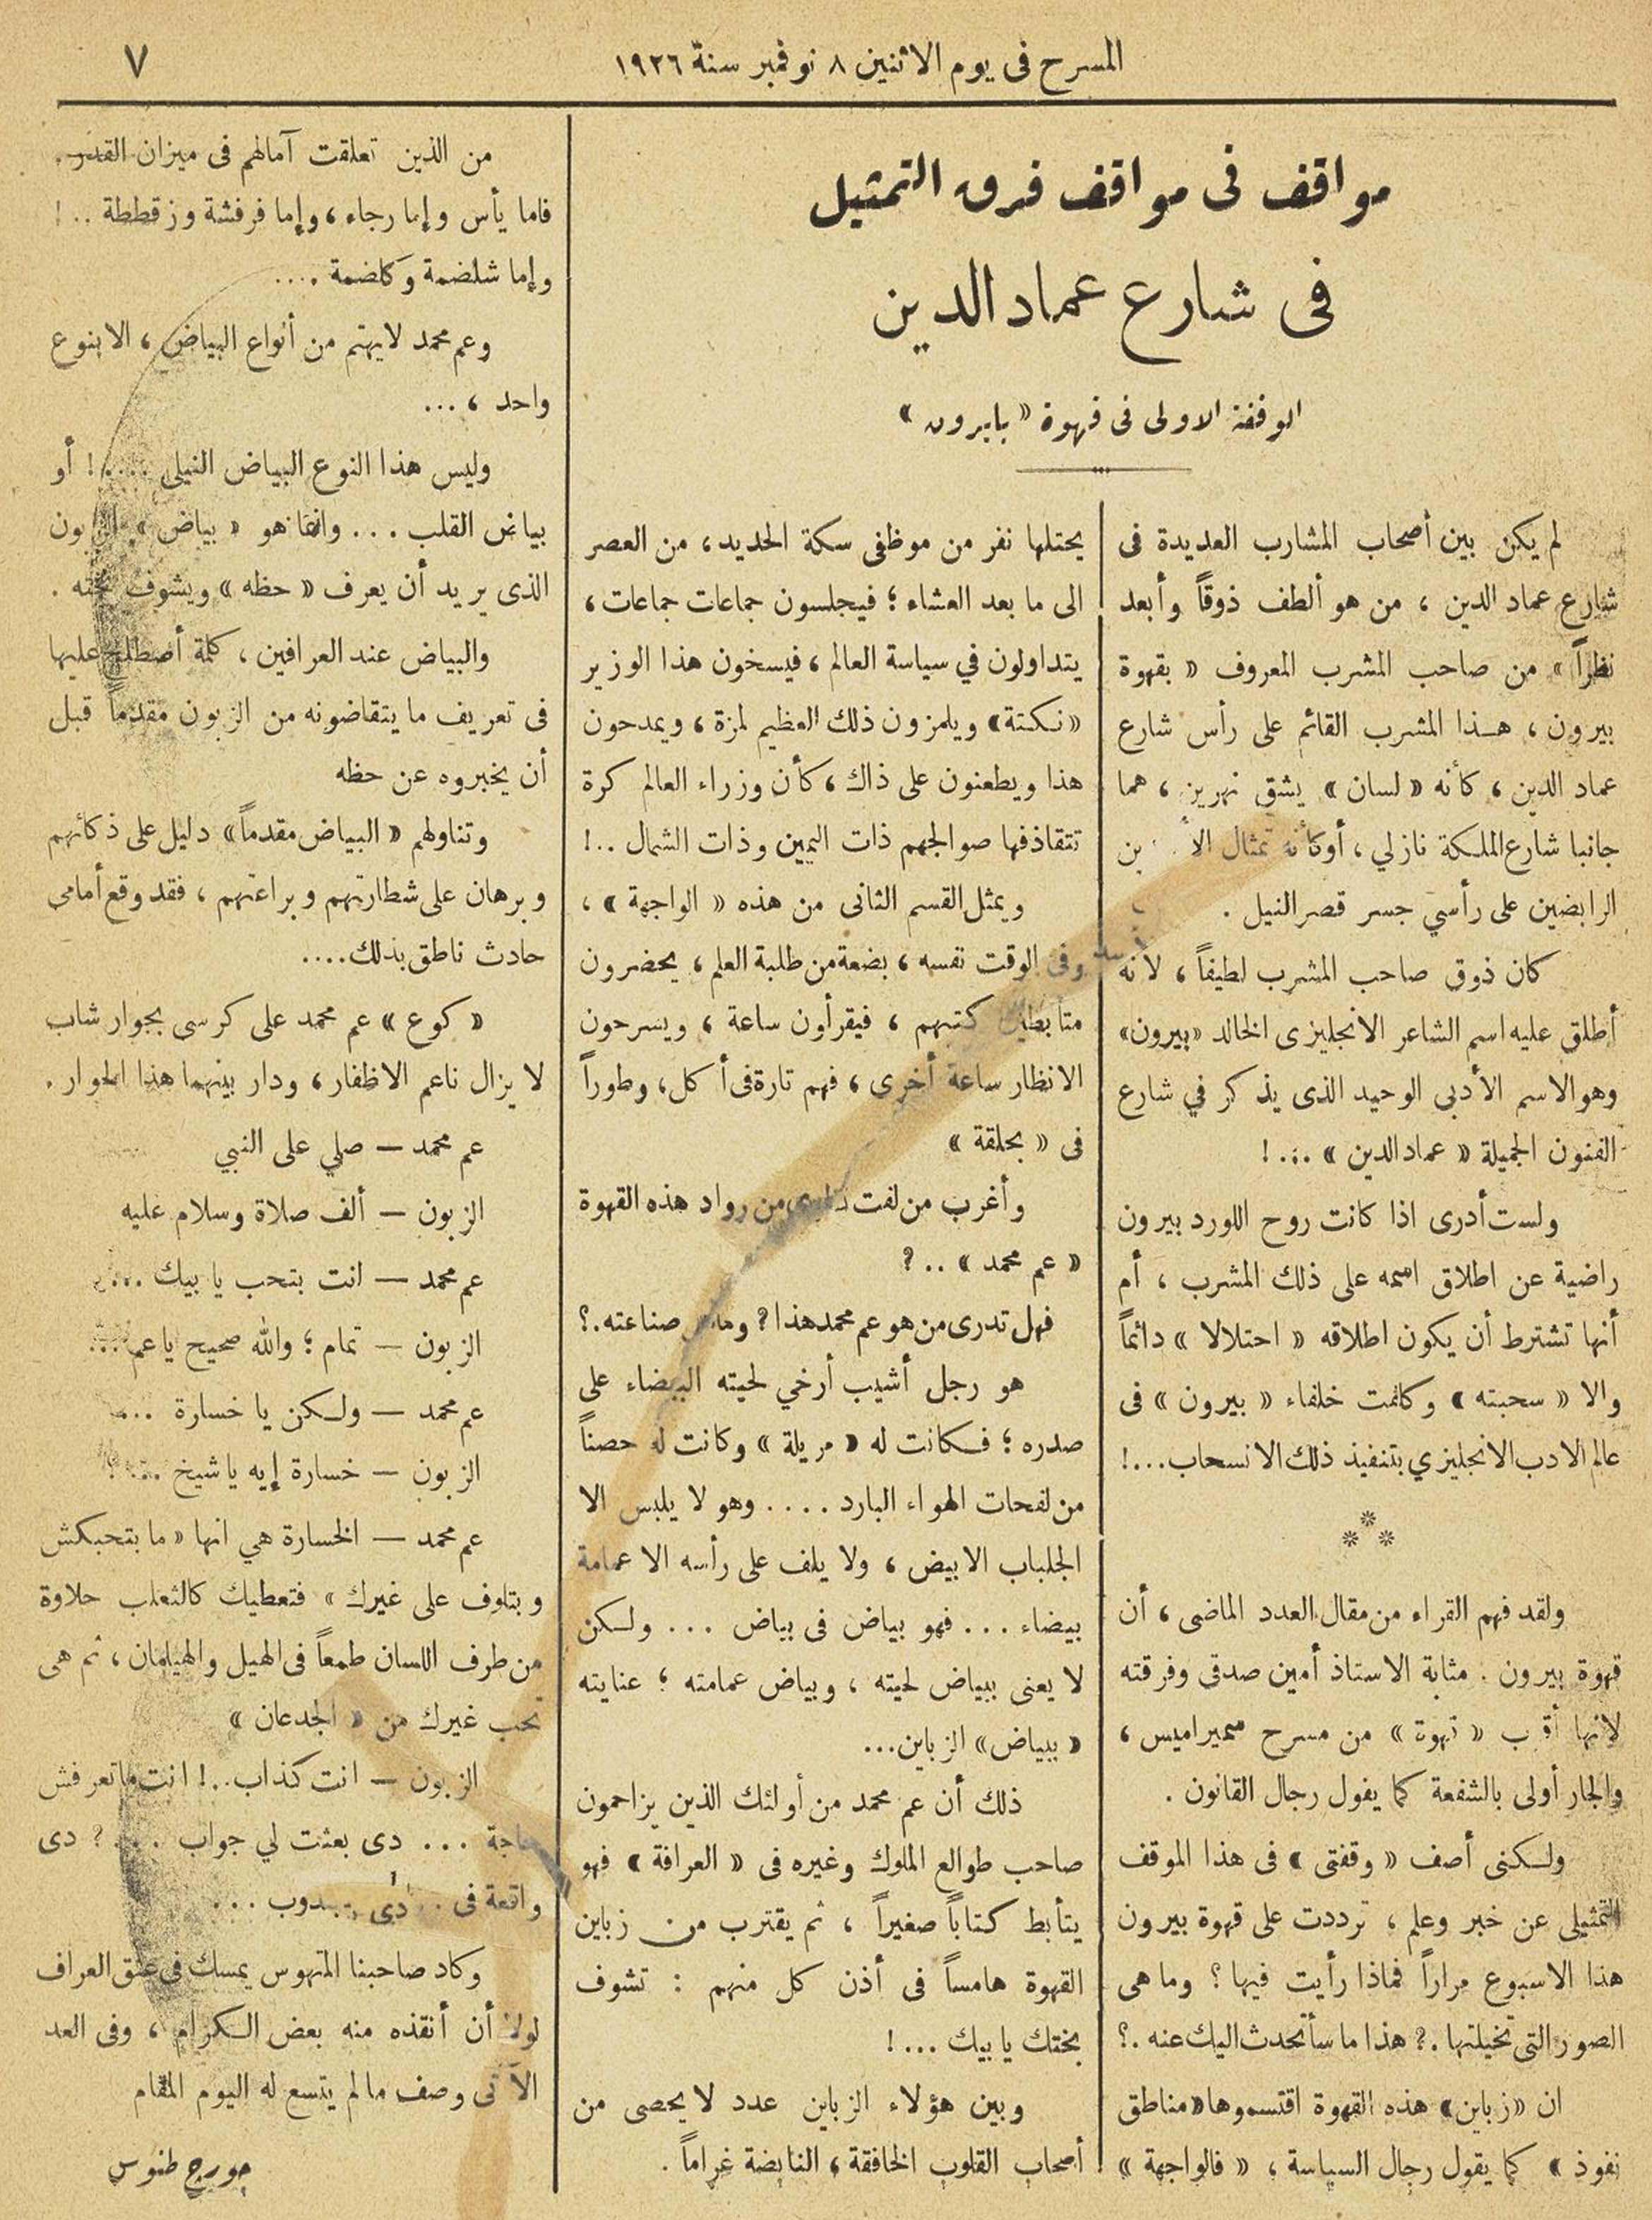 المسرح فى يوم الاثنين ٨ نوفمبر سنة ١٩٢٦
٧
مواقف فى مواقف فرق التمثيل
فى شارع عماد الدين
الوقفة الاولى فى قهوة « بابيرون »
لم يكن بين أصحاب المشارب العديدة فى
شارع عماد الدين ، من هو ألطف ذوقاً وأبعد
نظراً » من صاحب المشرب المعروف « بقهوة
بيرون ، هـذا المشرب القائم على رأس شارع
عماد الدين ، كأنه « لسان » يشق نهرين ، هما
جانبا شارع الملـكة نازلي ، أوكأنه تمثال
الرابضين على رأسي جسر قصر النيل .
كان ذوق صاحب المشرب لطيفاً ، لأنه
أطلق عليه اسم الشاعر الانجليزى الخالد «بيرون»
وهو الاسم الأدبى الوحيد الذى يذكر في شارع
الفنون الجميلة « عماد الدين » ...!
ولست أدرى اذا كانت روح اللورد بيرون
راضية عن اطلاق اسمه على ذلك المشرب ، أم
أنها تشترط أن يكون اطلاقه « احتلالا » دائماً
والا « سحبته » وكلفت خلفاء « بيرون » فى
عالم الادب الانجليزي بتنفيذ ذلك الانسحاب...!
***
ولقد فهم القراء من مقال العدد الماضى ، أن
قهوة بيرون . مثابة الاستاذ أمين صدقي وفرقته
لانها أقرب « قهوة » من مسرح سميراميس ،
والجار أولى بالشفعة كما يقول رجال القانون .
ولـكنى أصف « وقفتى » فى هذا الموقف
التمثيلى عن خبر وعلم ، ترددت على قهوة بيرون
هذا الاسبوع مراراً فماذا رأيت فيها ؟ وما هى
الصور التى تخيلتها .؟ هذا ما سأتحدث اليك عنه .؟
ان «زباين» هذه القهوة اقتسموها «مناطق
نفوذ » كما يقول رجال السياسة ، « فالواجهة »
يحتلها نفر من موظفى سكة الحديد ، من العصر
الى ما بعد العشاء ؛ فيجلسون جماعات جماعات ،
يتداولون في سياسة العالم ، فيسخون هذا الوزير
«نـكتة» ويلمزون ذلك العظيم لمزة ، ويمدحون
هذا ويطعنون على ذاك ، كأن وزراء العالم كرة
تتقاذفها صوالجهم ذات اليمين وذات الشمال ..!
ويمثل القسم الثانى من هذه « الواجهة » ،
وفى الوقت نفسه ، بضعة من طلبة العلم ، يحضرون
متأبطين كتبهم ، فيقرأون ساعة ، ويسرحون
الانظار ساعة أخرى ، فهم تارة فى أكل ، وطوراً
فى « بحلقة »
وأغرب من لفت من رواد هذه القهوة
« عم محمد » ..؟
فهل تدرى من هو عم محمد هذا ؟ وماهى صناعته .؟
هو رجل أشيب أرخي لحيته البيضاء على
صدره ؛ فـكانت له « مريلة » وكانت له حصناً
من لفحات الهواء البارد .... وهو لا يلبس الا
الجلباب الابيض ، ولا يلف على رأسه الا عمامة
بيضاء ... فهو بياض فى بياض ... ولـكن
لا يعنى ببياض لحيته ، وبياض عمامته ؛ عنايته
« ببياض » الزباين...
ذلك أن عم محمد من أولئك الذين يزاحمون
صاحب طوالع الملوك وغيره فى « العرافة » فهو
يتأبط كتاباً صغيراً ، ثم يقترب من زباين
القهوة هامساً فى أذن كل منهم : تشوف
بختك يا بيك ...!
وبين هؤلاء الزباين عدد لا يحصى من
أصحاب القلوب الخافقة ، النابضة غراماً .
من الذين تعلقت آمالهم فى ميزان القدر .
فاما يأس وإما رجاء ، وإما فرفشة وزقططة ..!
وإما شلضمة وكلضمة ....
وعم محمد لا يهتم من أنواع البياض ، الا بنوع
واحد ، ...
وليس هذا النوع البياض النيلى ....! أو
بياض القلب ... وانما هو « بياض » الزبون
الذى يريد أن يعرف « حظه » ويشوف بخته .
والبياض عند العرافين ، كلمة أصطلح عليها
فى تعريف ما يتقاضونه من الزبون مقدماً قبل
أن يخبروه عن حظه
وتناولهم « البياض مقدماً » دليل على ذكائهم
وبرهان على شطارتهم وبراعتهم ، فقد وقع أمامى
حادث ناطق بذلك....
« كوع » عم محمد على كرسى بجوار شاب
لا يزال ناعم الاظفار ، ودار بينهما هذا الحوار .
عم محمد — صلي على النبي
الزبون — ألف صلاة وسلام عليه
عم محمد — انت بتحب يا بيك ...
الزبون — تمام ؛ والله صحيح يا عم ...
عم محمد — ولـكن يا خسارة ...
الزبون — خسارة إيه يا شيخ ...؟
عم محمد — الخسارة هي انها « ما بتحبكش
وبتلوف على غيرك » فتعطيك كالثعلب حلاوة
من طرف اللسان طمعاً فى الهيل والهيلمان ، ثم هى
تحب غيرك من « الجدعان »
الزبون — انت كذاب..! انت ماتعرفش
حاجة ... دى بعثت لي جواب ...؟ دى
واقعة فى .. دى بتدوب ...
وكاد صاحبنا المتهوس يمسك فى عنق العراف
لولا أن أنقذه منه بعض الـكرام ، وفى العد
الآتى وصف مالم يتسع له اليوم المقام
جورج طنوس